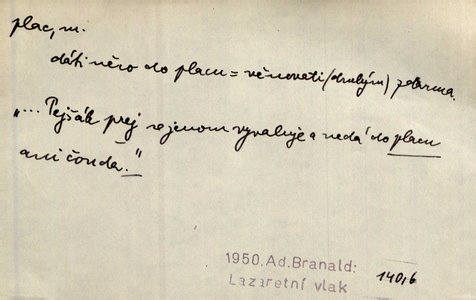 plac, m.
dáti něco do placu = věnovati (druhým) zdarma.
„... Pejšák prej se jenom vyvaluje a nedá do placu
ani čouda."
1950, Ad. Branald:
Lazaretní vlak
140,6